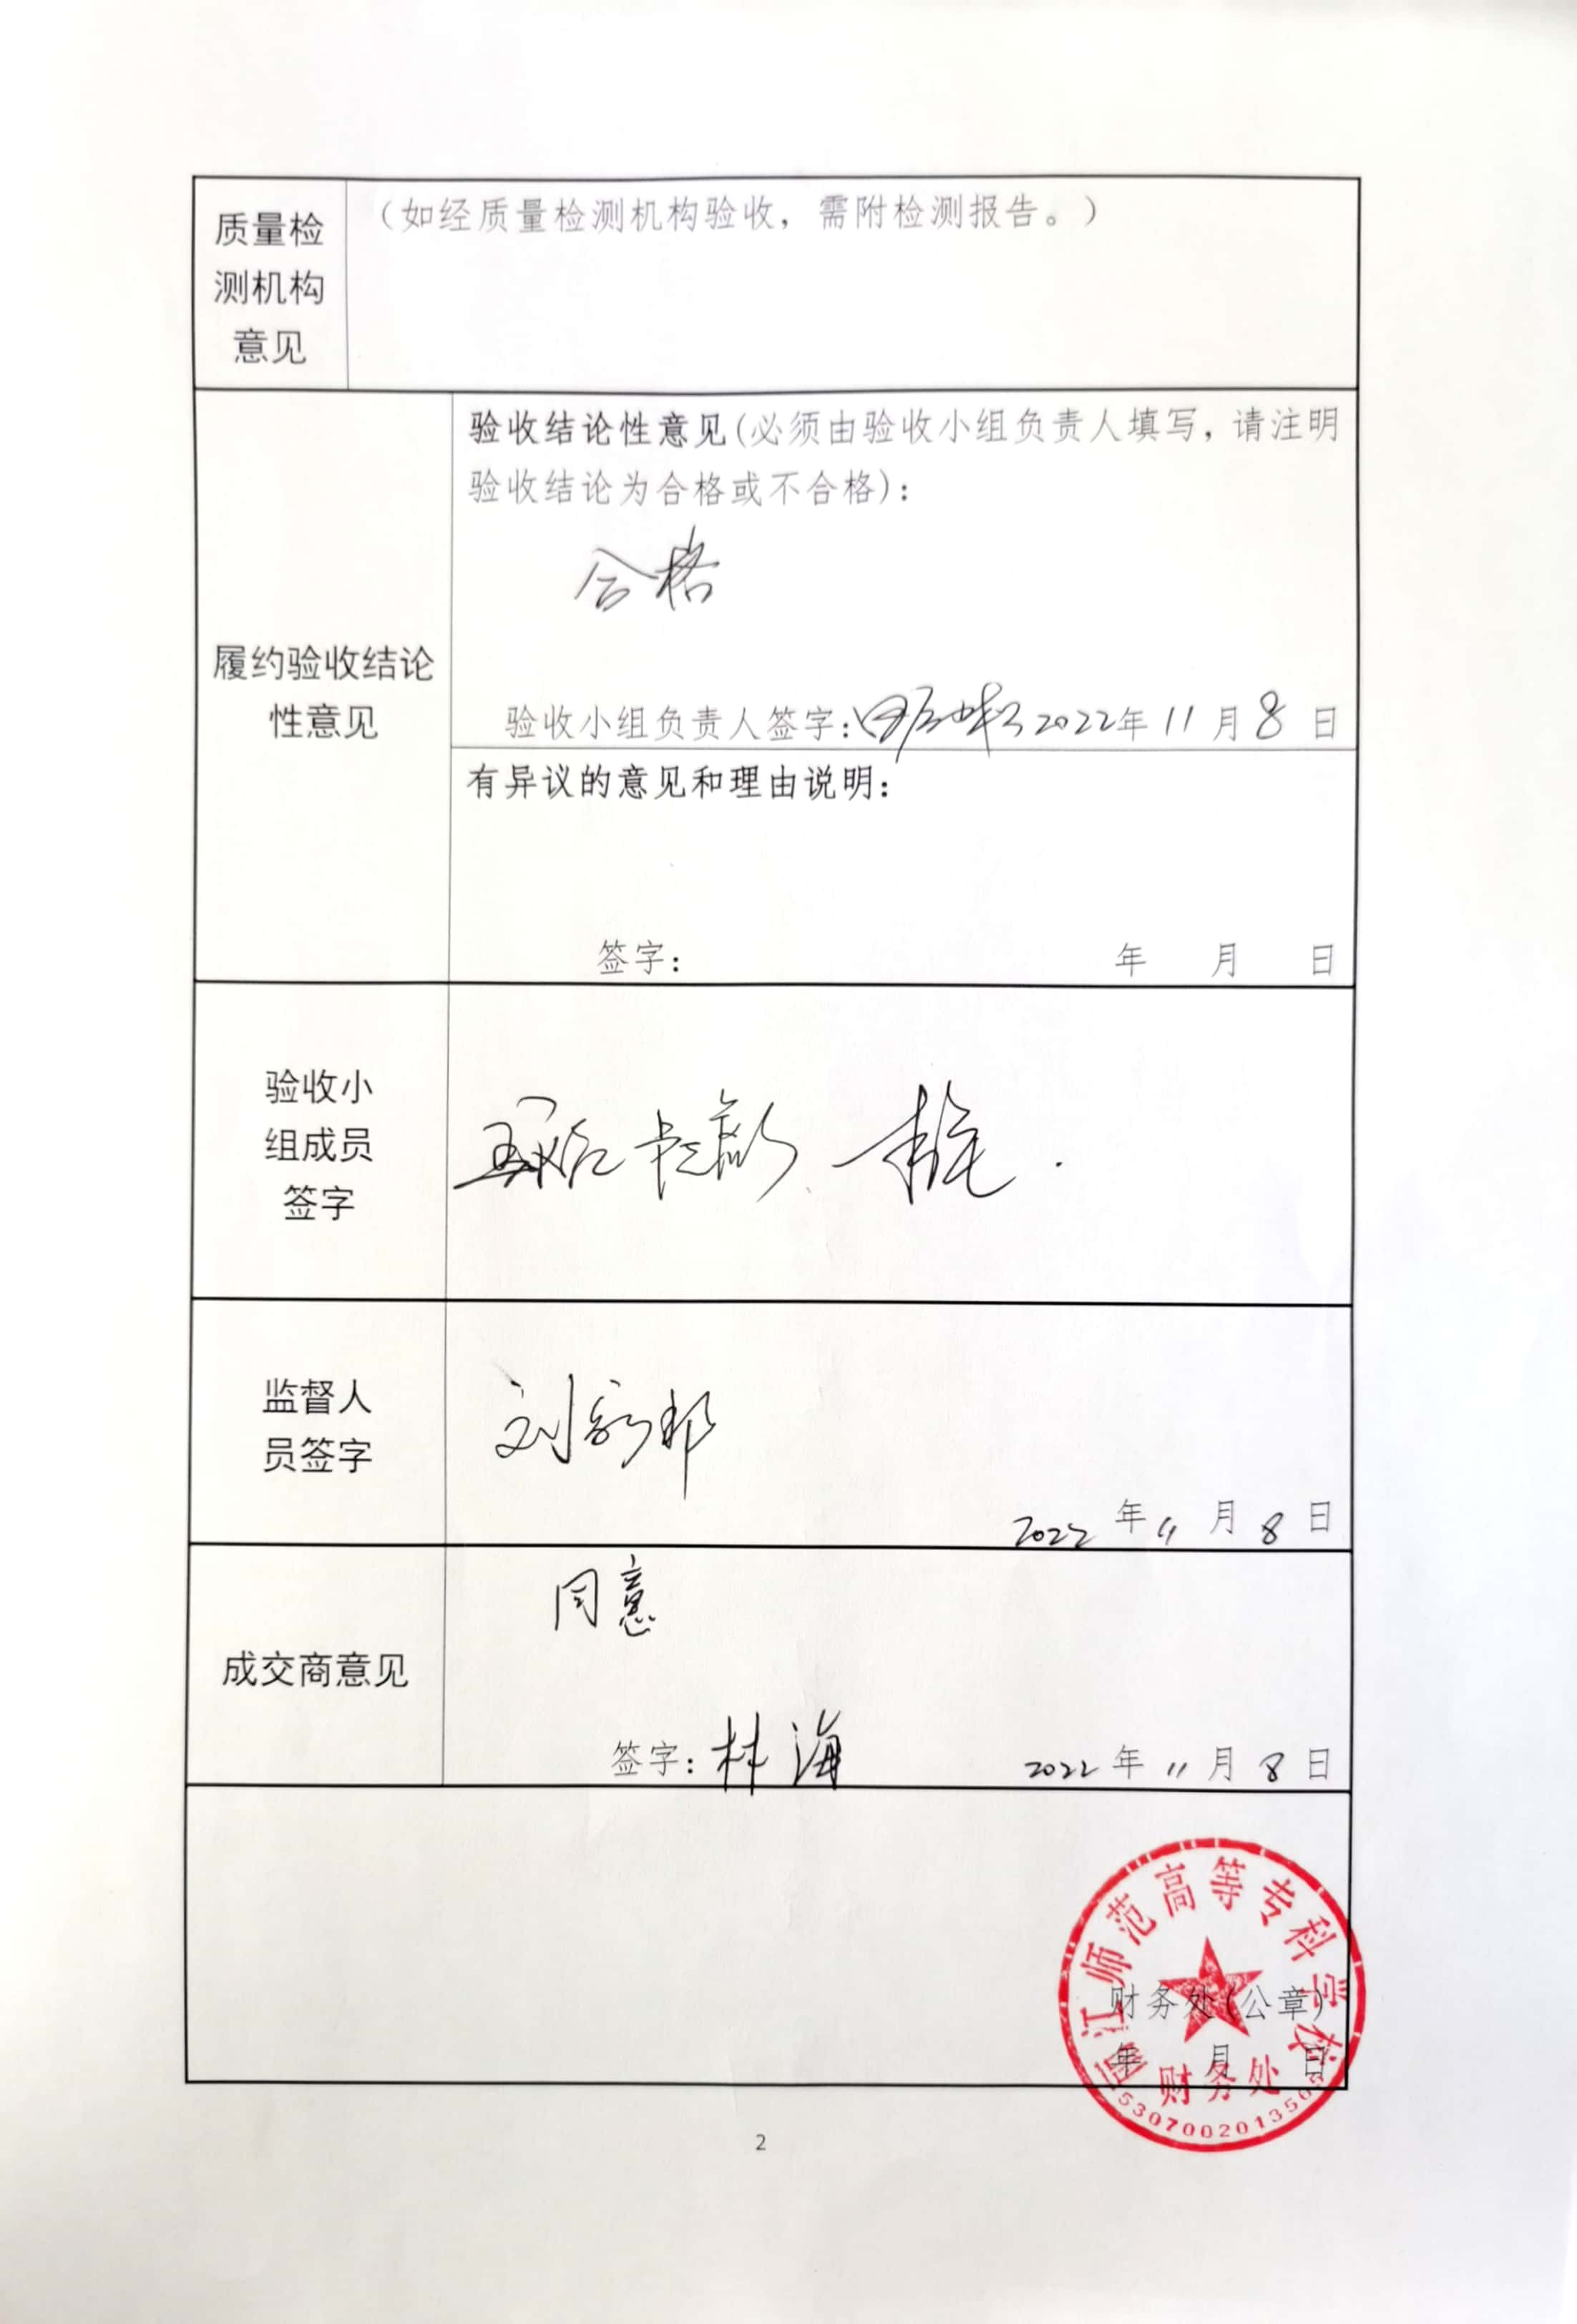 质量检
测机构
意见
（如经质量检测机构验收，需附检测报告。）
履约验收结论
性意见
验收结论性意见(必须由验收小组负责人填写，请注明
验收结论为合格或不合格)：
合格
验收小组负责人签字： 2022年11月8日
有异议的意见和理由说明：
签字： 年 月 日
验收小
组成员
签字
监督人
员签字
刘
2022年11月8日
成交商意见
同意
签字：林海 2022年11月8日
丽江师范高等专科学校
财务处(公章)
年 月 日
财务处
2